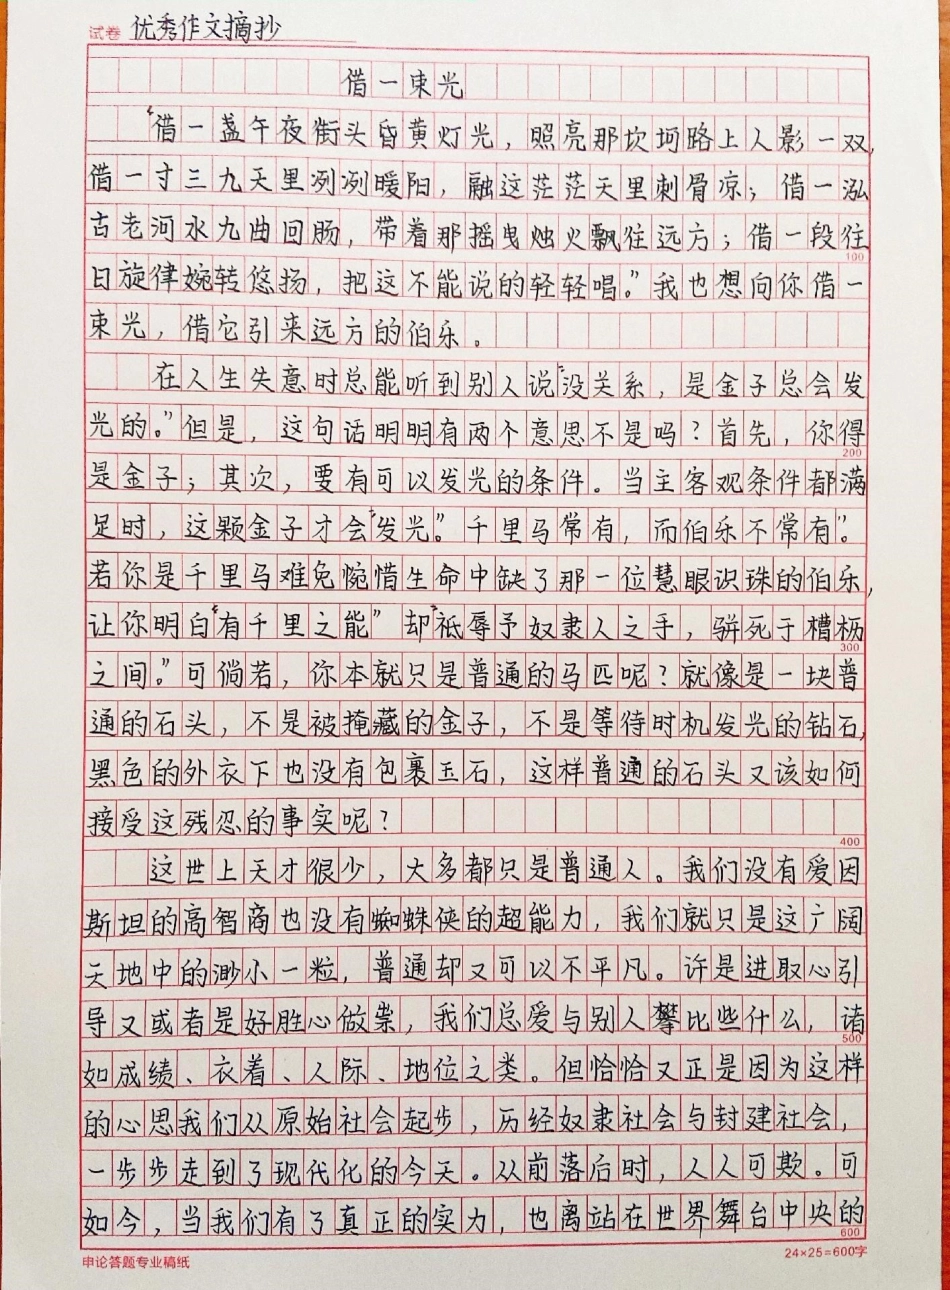 试卷 优秀作文摘抄
借一束光
“借一盏午夜街头昏黄灯光，照亮那坎坷路上人影一双，
借一寸三九天里冽冽暖阳，融这茫茫天里刺骨凉；借一泓
古老河水九曲回肠，带着那摇曳烛火飘往远方；借一段往
100
日旋律婉转悠扬，把这不能说的轻轻唱。”我也想向你借一
束光，借它引来远方的伯乐。
在人生失意时总能听到别人说“没关系，是金子总会发
光的。”但是，这句话明明有两个意思不是吗？首先，你得
200
是金子；其次，要有可以发光的条件。当主客观条件都满
足时，这颗金子才会“发光”。千里马常有，而伯乐不常有”。
若你是千里马难免惋惜生命中缺了那一位慧眼识珠的伯乐，
让你明白“有千里之能”却“祗辱予奴隶人之手，骈死于槽枥
300
之间。”可倘若，你本就只是普通的马匹呢？就像是一块普
通的石头，不是被掩藏的金子，不是等待时机发光的钻石，
黑色的外衣下也没有包裹玉石，这样普通的石头又该如何
接受这残忍的事实呢？
400
这世上天才很少，大多都只是普通人。我们没有爱因
斯坦的高智商也没有蜘蛛侠的超能力，我们就只是这广阔
天地中的渺小一粒，普通却又可以不平凡。许是进取心引
导又或者是好胜心做祟，我们总爱与别人攀比些什么，诸
500
如成绩、衣着、人际、地位之类。但恰恰又正是因为这样
的心思我们从原始社会起步，历经奴隶社会与封建社会，
一步步走到了现代化的今天。从前落后时，人人可欺。可
如今，当我们有了真正的实力，也离站在世界舞台中央的
600
申论答题专业稿纸 24×25=600字